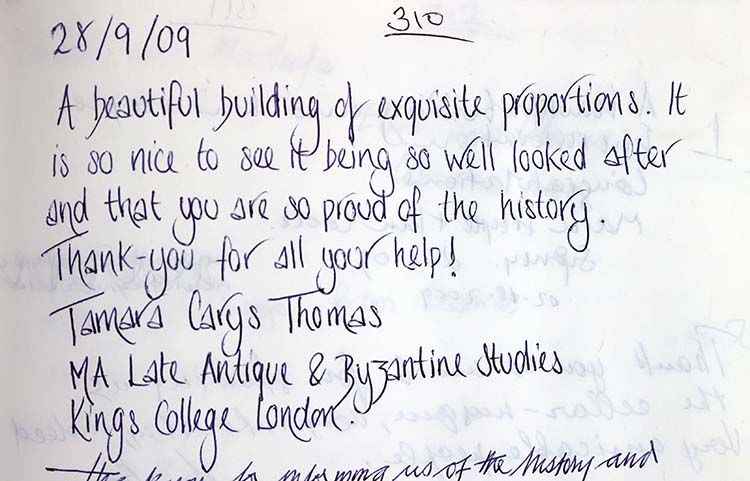 28/9/09
310
A beautiful building of exquisite proportions. It
is so nice to see it being so well looked after
and that you are so proud of the history.
Thank-you for all your help!
Tamara Carys Thomas
MA Late Antique & Byzantine Studies
Kings College London.
for informing us of the history and